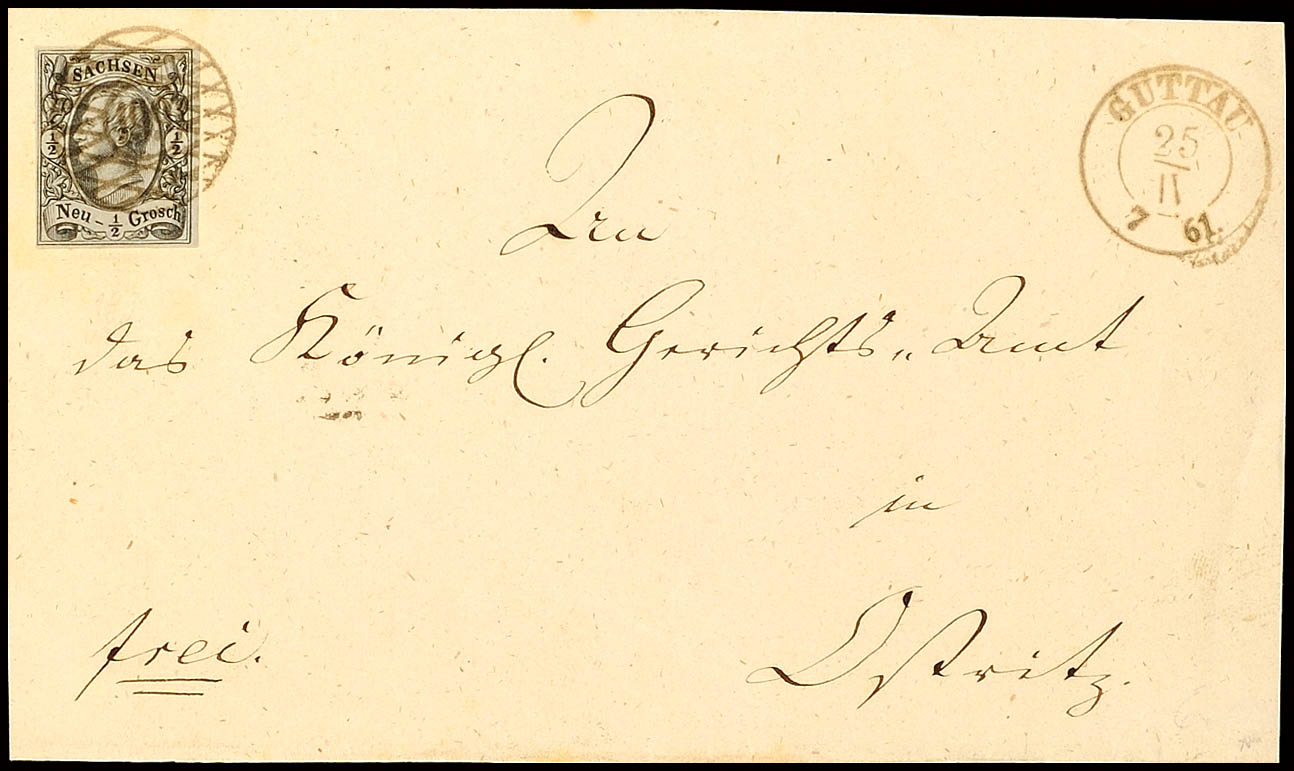 SACHSEN
½ ½
Neu - ½ Grosch
GUTTAU
25
II
7 61.
An
das Königl. Gerichts„Amt
in
Ostritz.
frei.